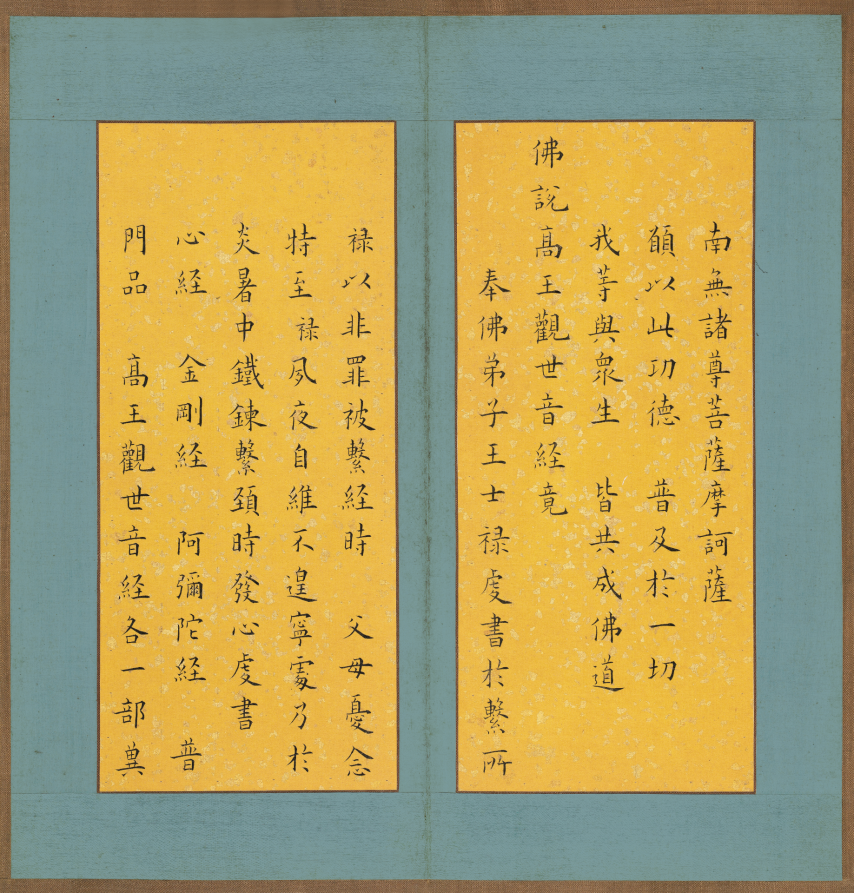 南無諸尊菩薩摩訶薩
願以此功德　普及於一切
我等與衆生　皆共成佛道
佛說高王觀世音経竟
奉佛弟子王士禄虔書於繫所
禄以非罪被繫経時　父母憂念
特至禄夙夜自維不遑寧處乃於
炎暑中鐵鍊繫頚時發心虔書
心経　金剛経　阿彌陀経　普
門品　高王觀世音経各一部冀